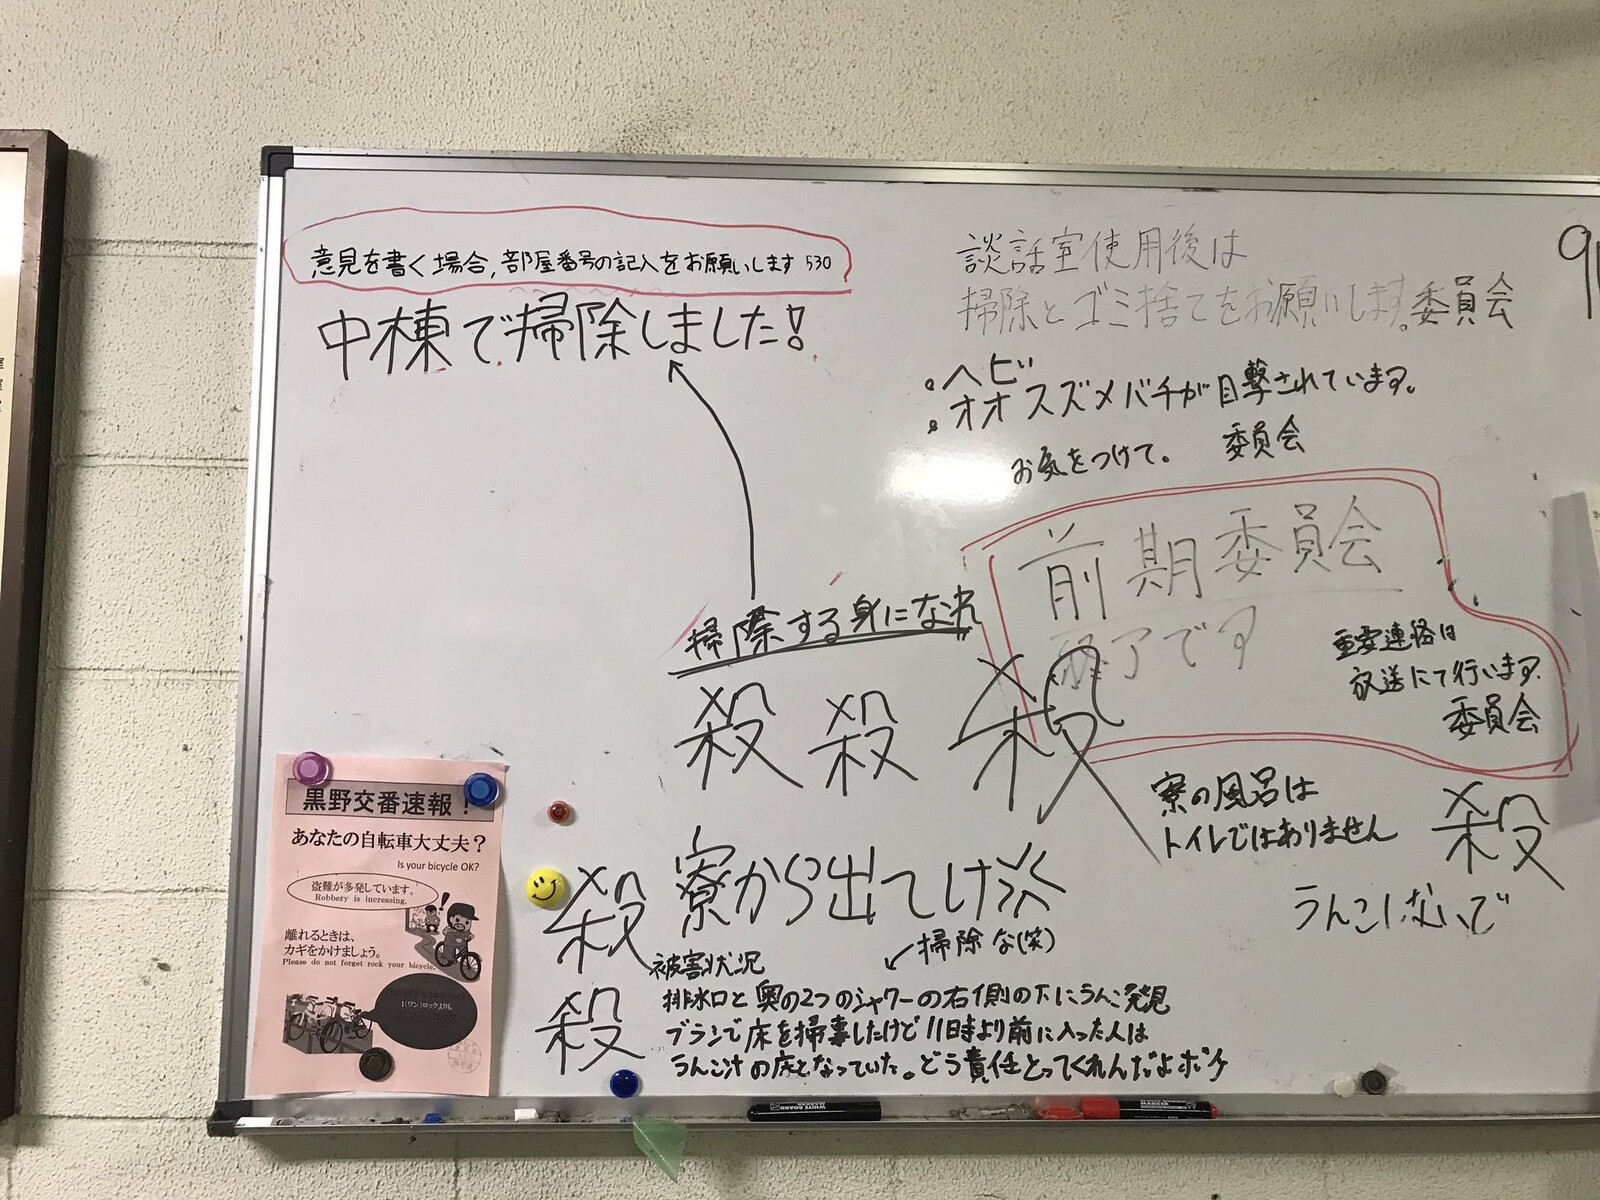 意見を書く場合,部屋番号の記入をお願いします 530
中棟で掃除しました!
談話室使用後は
掃除とゴミ捨てをお願いします。委員会
・ヘビ
・オオスズメバチが目撃されています。
お気をつけて。 委員会
前期委員会
終了です
重要連絡は
放送にて行います
委員会
掃除する身になれ
殺 殺 殺
寮の風呂は
トイレではありません
殺
うんこしないで
殺
寮から出てけ
掃除な(笑)
被害状況
排水口と奥の2つのシャワーの右側の下にうんこ発見
殺
ブラシで床を掃除したけど11日時より前に入った人は
うんこ汁の床となっていた。どう責任とってくれんだよボケ
黒野交番速報!
あなたの自転車大丈夫?
Is your bicycle OK?
盗難が多発しています。
Robbery is increasing.
離れるときは、
カギをかけましょう。
Please do not forget rock your bicycle.
1(ワン)ロックよりも
WHITE BOARD
MARKER